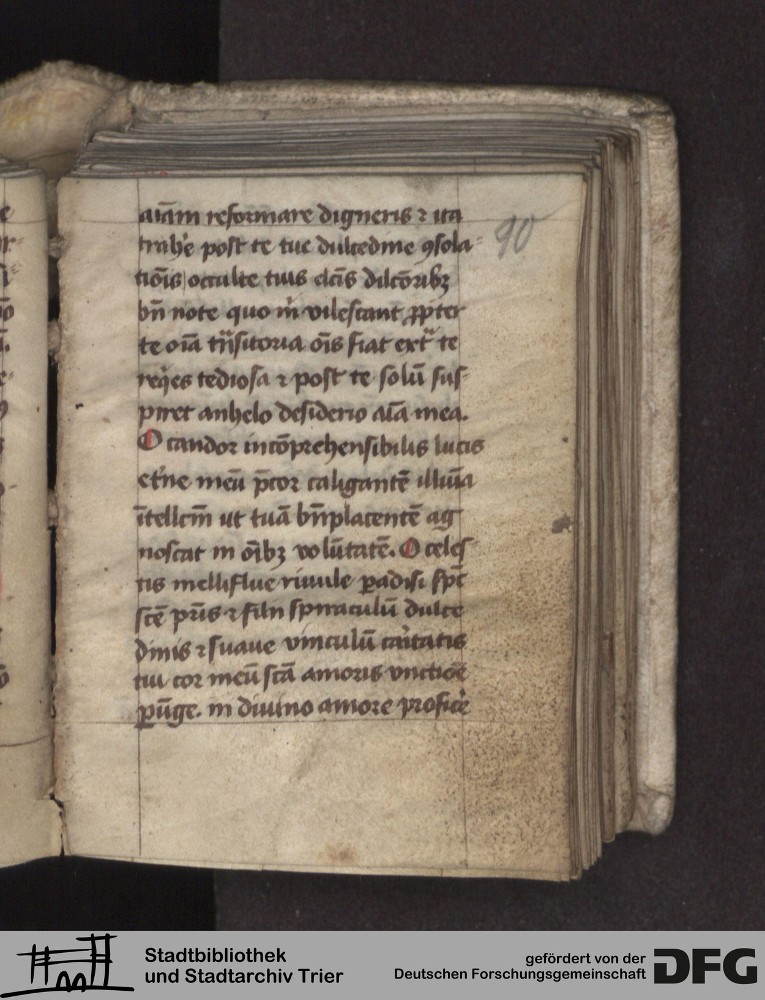 aīam reformare digneris ⁊ ita
trahe post te tue dulcedine ꝯsola
tiōis occulte tuis elc̄is dilc̄oribꝫ
bn̄ note quo m̄ vilescant ꝓpter
te oīa trn̄sitoria oīs fiat extͣ te
reqͥes tediosa ⁊ post te solū sus
piret anhelo desiderio aīa mea.
O candor incōprehensibilis lucis
et̓ne meū p̄cor caligantē illuīa
ītellcm̄ ut tuā bn̄placentē ag
noscat in oībꝫ volūtatē. O celes
tis melliflue riuule ꝑadisi sp̄c
scē pr̄is ⁊ filii spiraculū dulce
dinis ⁊ suaue vinculū caͥtatis
tui cor meū scā amoris vnctiōe
ꝑūge. in diuino amore proficͤe
90
Stadtbibliothek
und Stadtarchiv Trier
gefördert von der
Deutschen Forschungsgemeinschaft
DFG